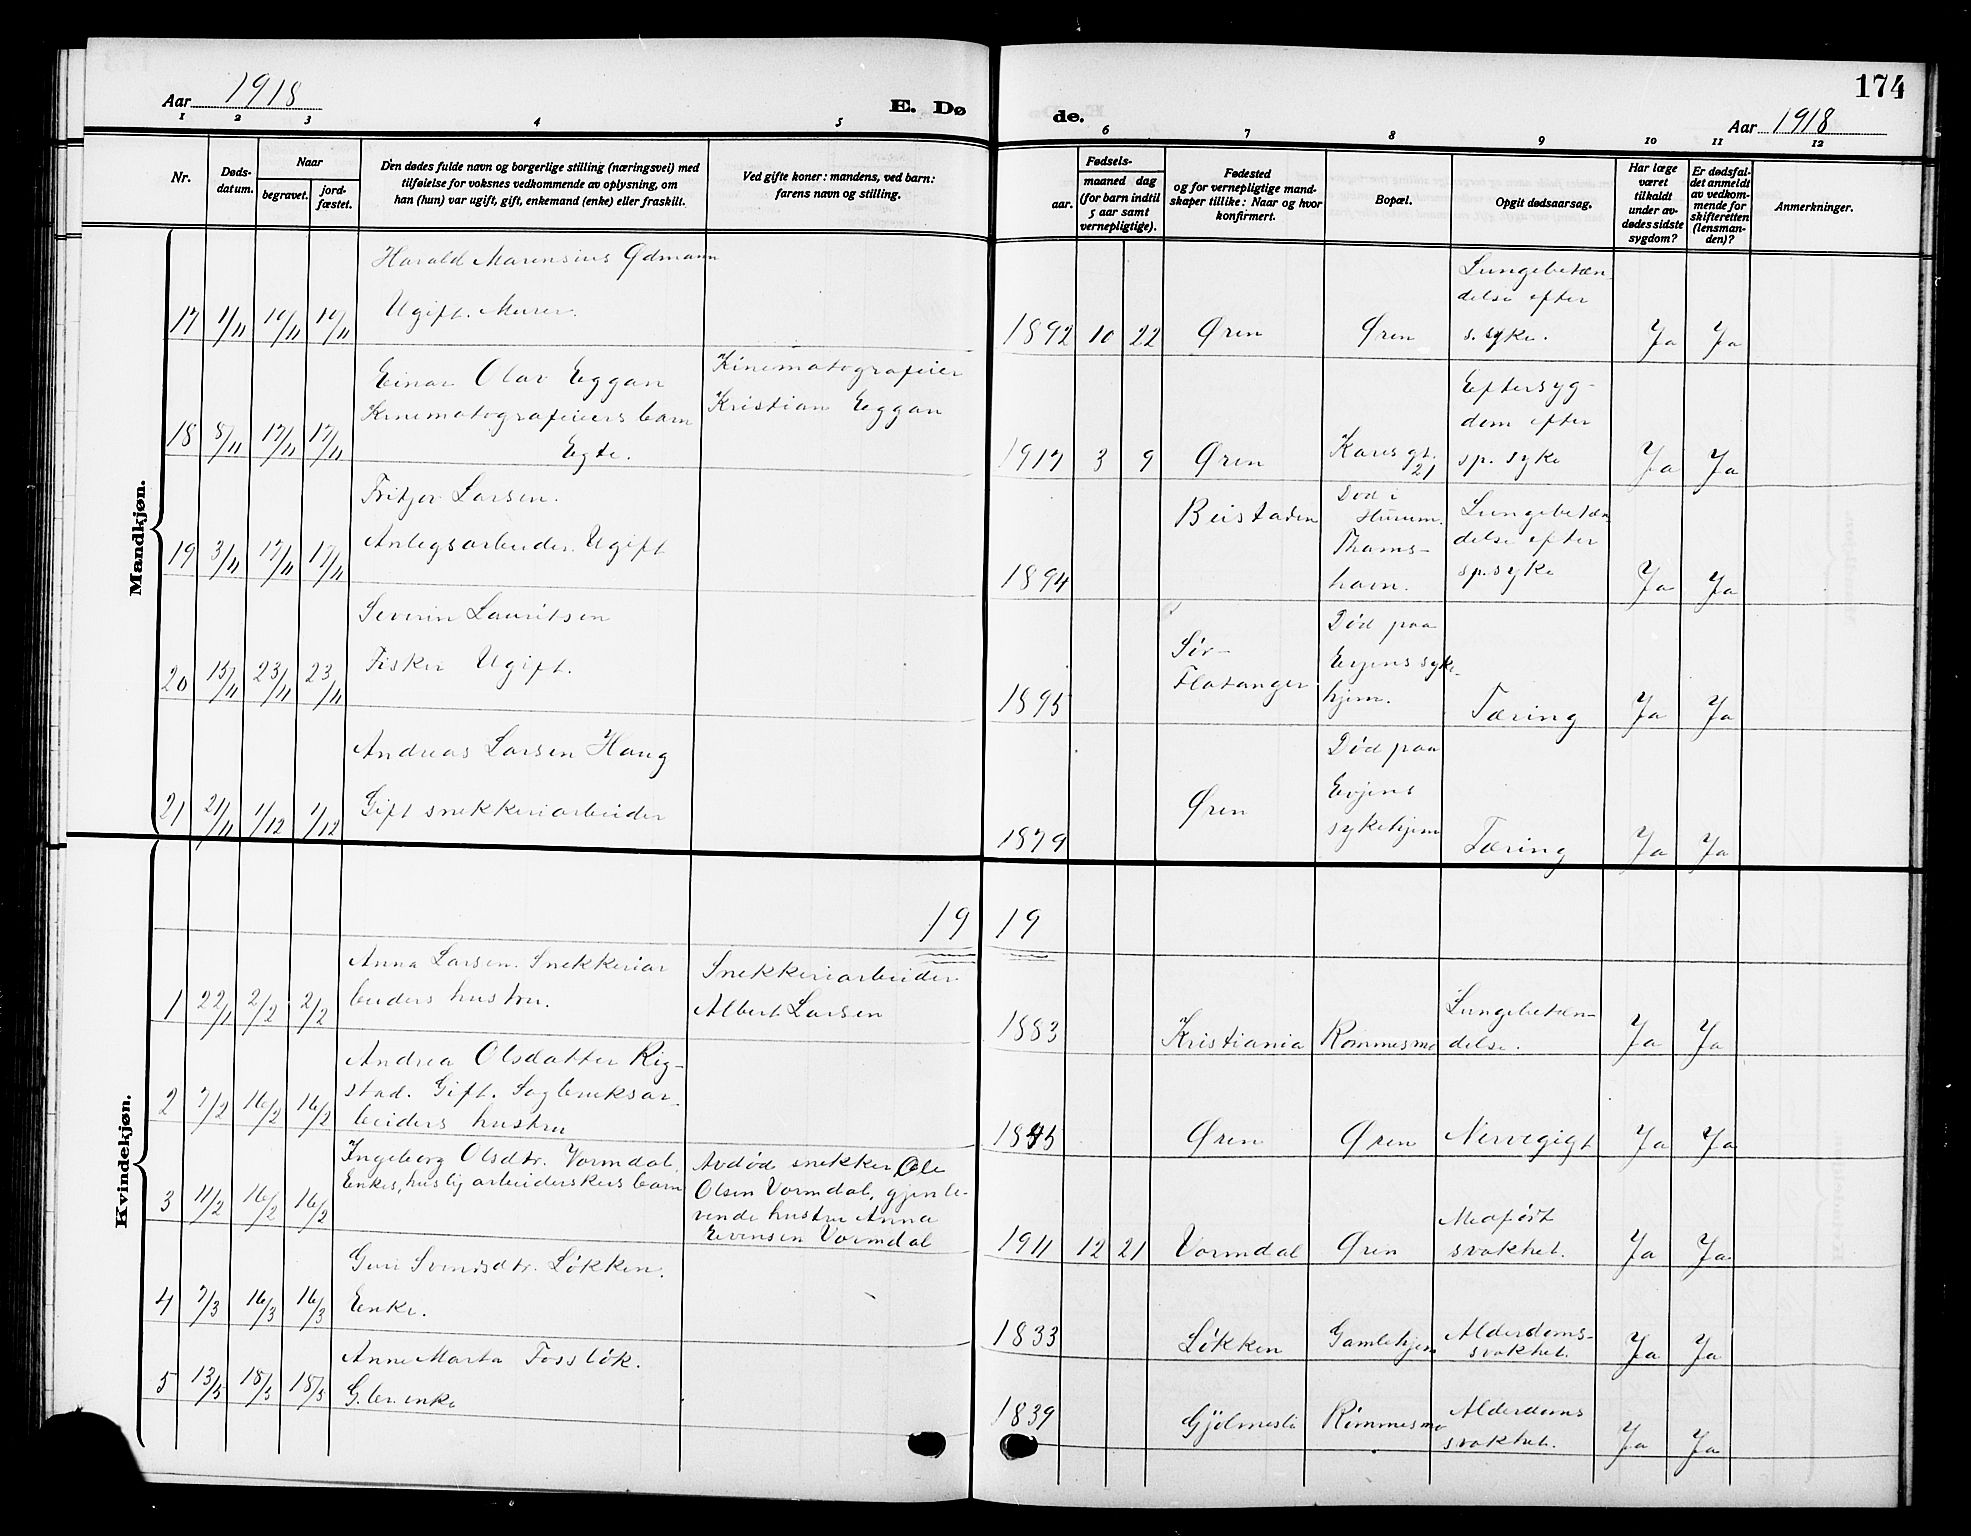 174
Aar 1918
E. Dø
de.
Aar 1918
1 2 3 4 5 6 7 8 9 10 11 12
Nr.
Dødsdatum.
Naar
begravet.
jordfæstet.
Den dødes fulde navn og borgerlige stilling (næringsvei) med
tilføielse for voksnes vedkommende av oplysning, om
han (hun) var ugift, gift, enkemand (enke) eller fraskilt.
Ved gifte koner: mandens, ved barn:
farens navn og stilling.
Fødsels-
aar.
maaned dag
(for barn indtil
5 aar samt
vernepligtige).
Fødested
og for vernepligtige mand-
skaper tillike: Naar og hvor
konfirmert.
Bopæl.
Opgit dødsaarsag.
Har læge
været
tilkaldt
under av-
dødes sidste
sygdom?
Er dødsfal-
det anmeldt
av vedkom-
mende for
skifteretten
(lensman-
den)?
Anmerkninger.
Mandkjøn.
Harald Marensius Ødmann
Ugift. Murer.
17 1/11 10/11 10/11
1892 10 22 Øren Øren
Lungebetæn
delse efter
s. syke.
Ja Ja
Einar Olav Eggan
Kinematografeiers barn
Egte.
Kinematografeier
Kristian Eggan
18 8/11 17/11 17/11
1917 3 9 Øren
Karesgt.
21
Eftersyg-
dom efter
sp. syke
Ja Ja
Fritjov Larsen.
Anlegsarbeider. Ugift
19 3/11 17/11 17/11
1894 Beistaden
Død i
Husum.
Thams-
havn.
Lungebetæn
delse efter
sp. syke
Ja Ja
Severin Lauritsen
Fisker Ugift.
20 15/11 23/11 23/11
1895
Sør-
Flatanger
Død paa
Evjens syke-
hjem.
Tæring
Ja Ja
Andreas Larsen Haug
Gift snekkeriarbeider
21 21/11 1/12 1/12
1879 Øren
Død paa
Evjens
sykehjem
Tæring
Ja Ja
Kvindekjøn.
19 19
Anna Larsen. Snekkeriar
beiders hustru.
Snekkeriarbeider
Albert Larsen
1 22/1 2/2 2/2
1883 Kristiania Rømmesmo
Lungebetæn-
delse.
Ja Ja
Andrea Olsdatter Rig-
stad. Gift. Sagbruksar-
beiders hustru
2 7/2 16/2 16/2
1845 Øren Øren Nervegigt Ja Ja
Ingeborg Olsdtr. Vormdal.
Enkes, huslig arbeiderskes barn
Avdød snekker Ole
Olsen Vormdal, gjenle-
vende hustru Anna
Evensen Vormdal
3 11/2 16/2 16/2
1911 12 21 Vormdal Øren
Medfødt
svakhet.
Ja Ja
Guri Svendsdtr. Løkken.
Enke.
4 7/3 16/3 16/3
1833 Løkken Gamlehjem
Alderdoms-
svakhet.
Ja Ja
Anne Marta Fossløk.
Gbr. enke
5 13/5 18/5 18/5
1839 Gjølmesli Rømmesmo
Alderdoms
svakhet.
Ja Ja